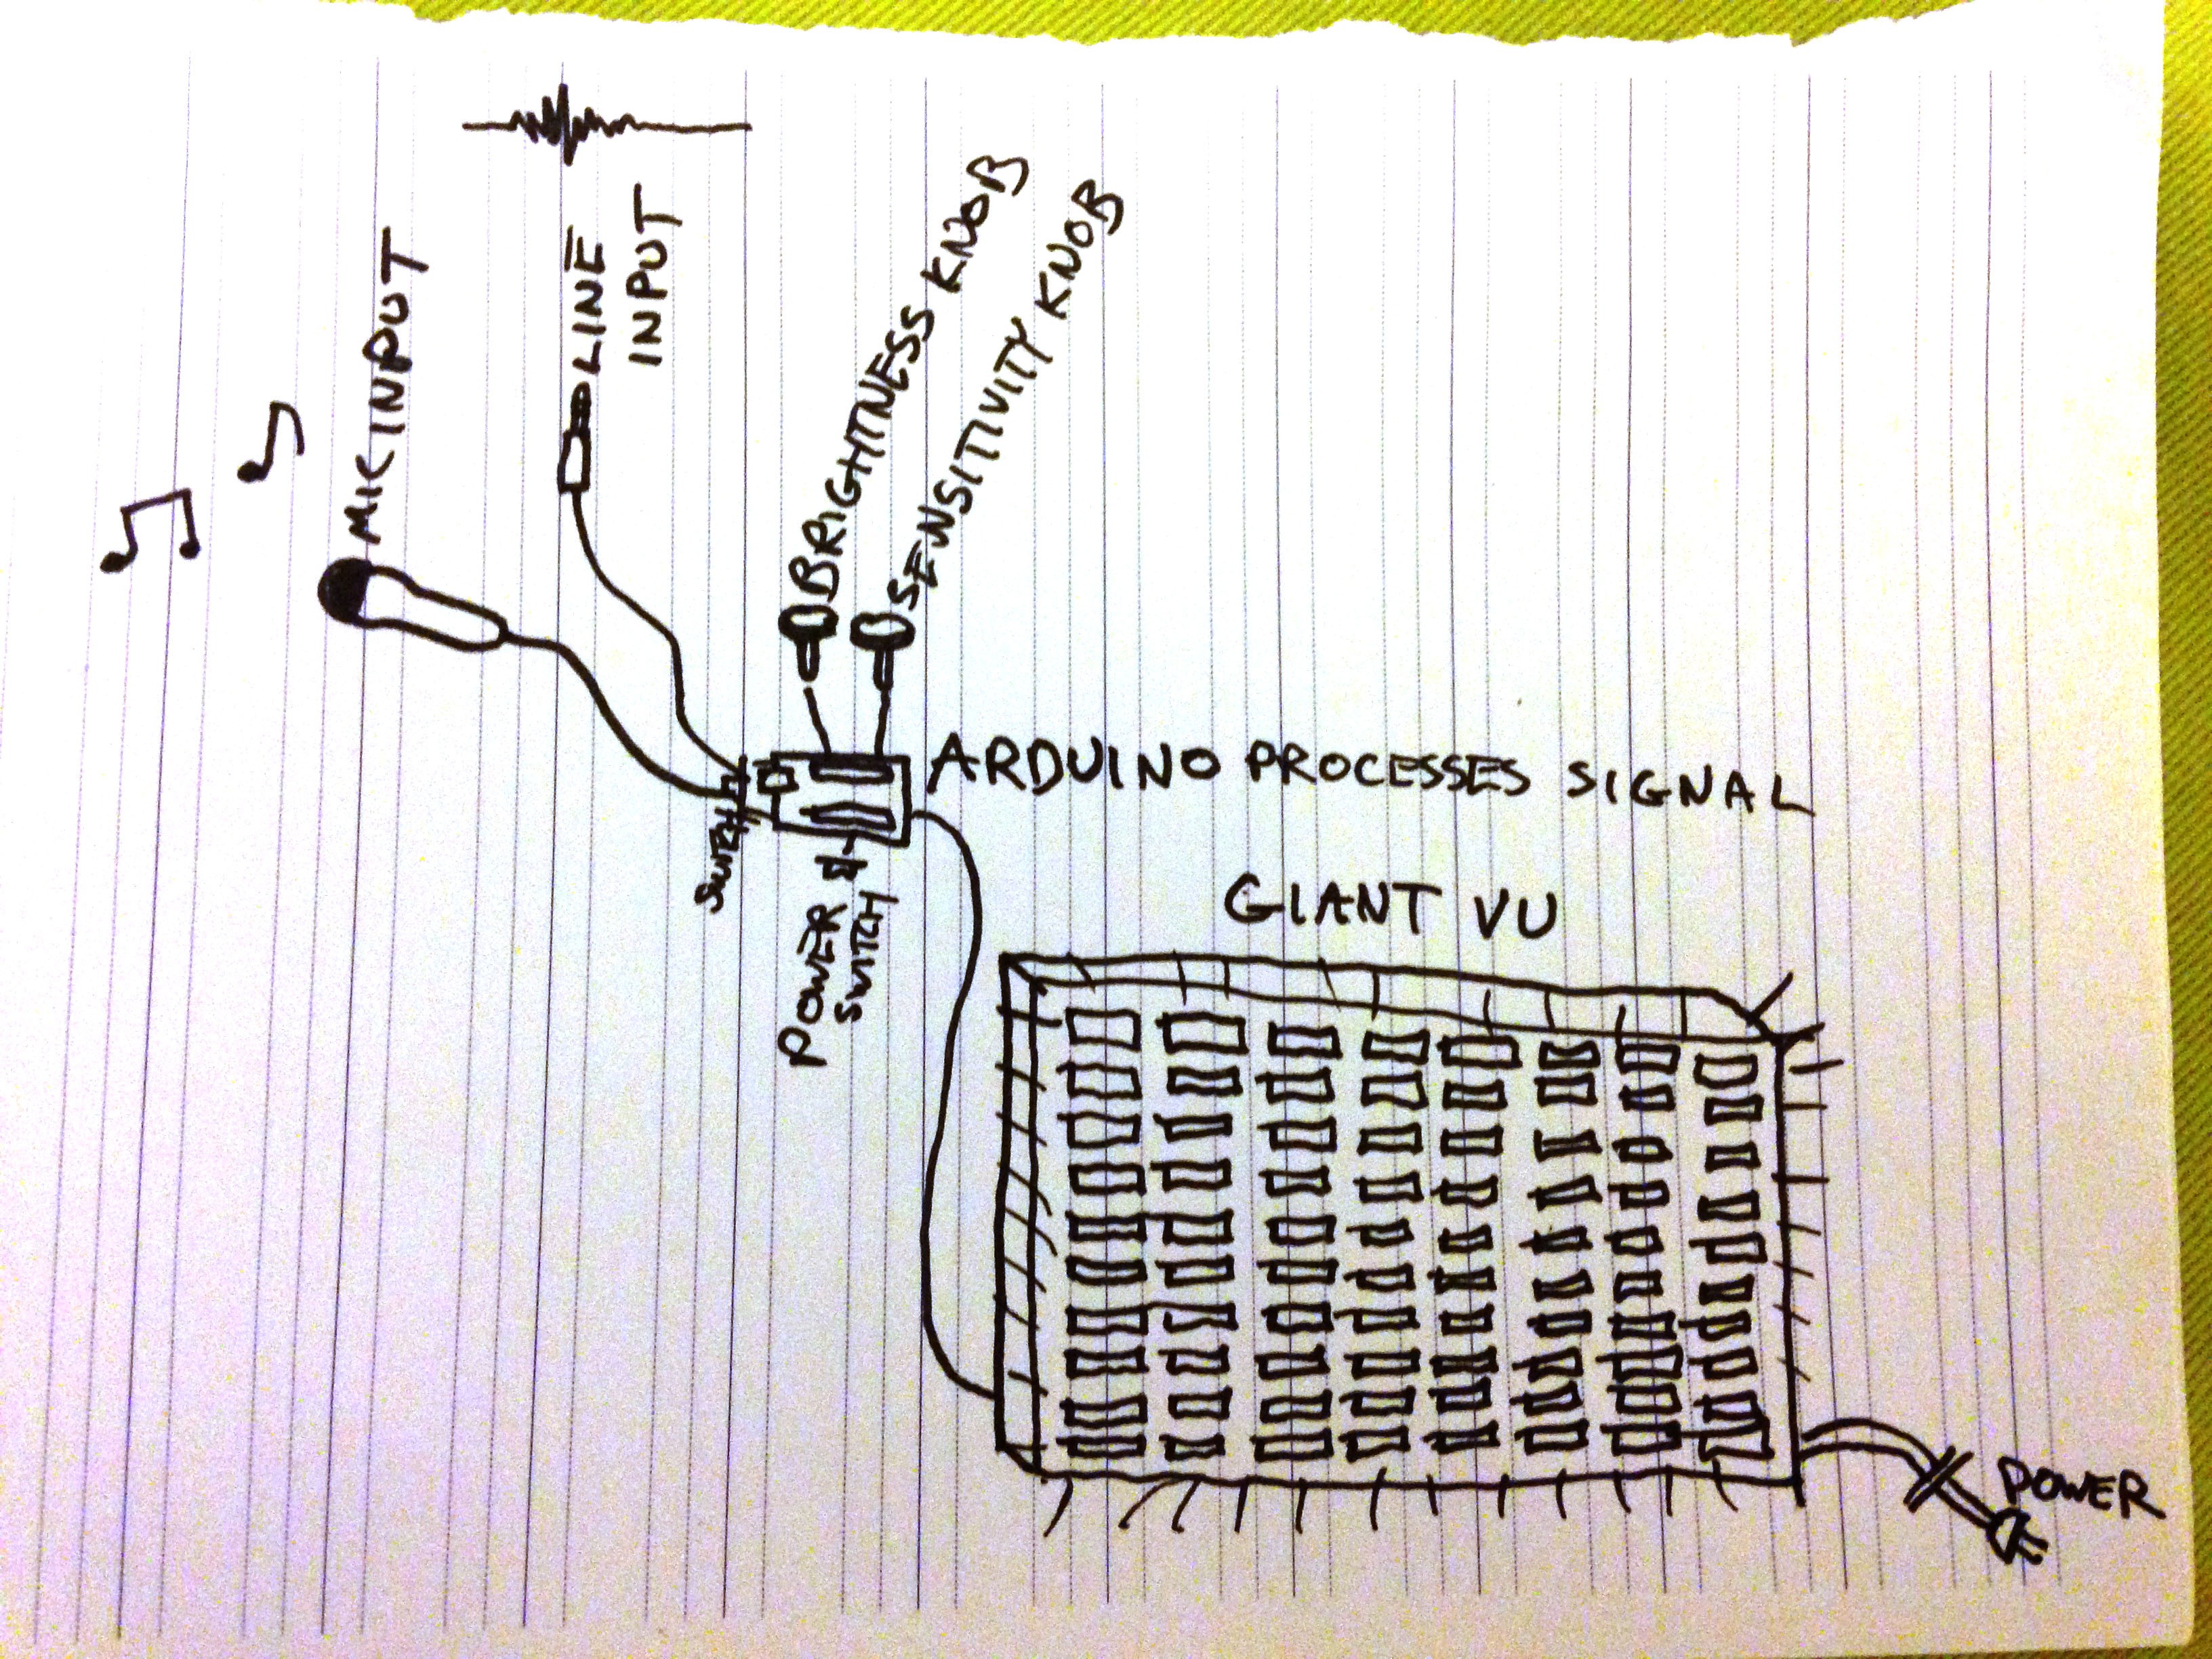 MIC INPUT
LINE
INPUT
BRIGHTNESS KNOB
SENSITIVITY KNOB
SWITCH
ARDUINO PROCESSES SIGNAL
POWER
SWITCH
GIANT VU
POWER